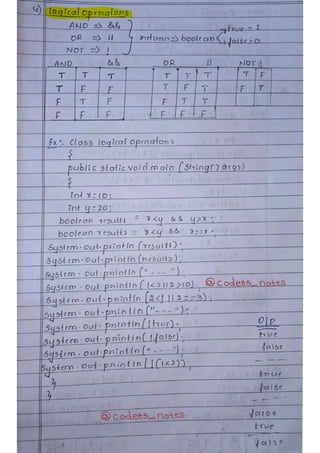 4) logical operators
AND => &&
OR => || return => boolean true = 1
NOT => ! false = 0
AND && OR || NOT !
T T T T T T T F
T F F T F T F T
F T F F T T
F F F F F F
Ex:- Class logical operators
{
public static void main (String[] args)
{
int x=10;
int y=20;
boolean result1 = x<y && y>x;
boolean result2 = x<y &&
System.out.println (result1);
System.out.println (result2);
System.out.println ("---");
System.out.println (1<2||2>10); @codeets_notes
System.out.println (2<1||2==3);
System.out.println ("---");
System.out.println (!true); O/p
System.out.println (!false); true
System.out.println ("---"); false
System.out.println (!(1<2)); ---
} true
} false
---
@codeets_notes false
true
false